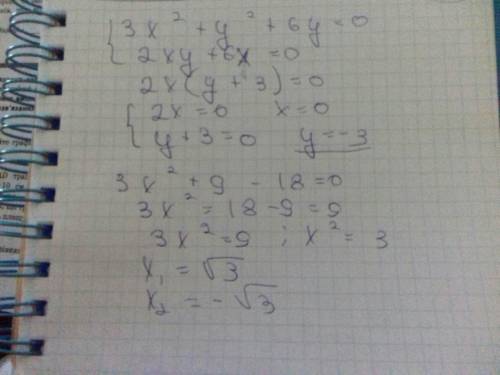 { 3x² + y² + 6y = 0
2xy + 6x = 0
2x(y + 3) = 0
{ 2x = 0 x = 0
y + 3 = 0 y = -3
3x² + 9 - 18 = 0
3x² = 18 - 9 = 9
3x² = 9 ; x² = 3
x₁ = √3
x₂ = -√3